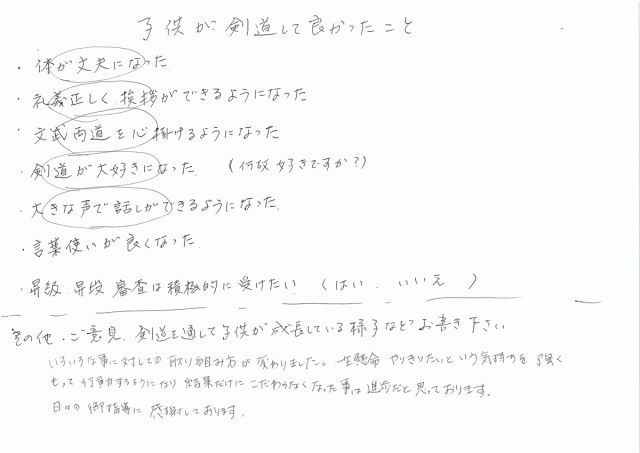 子供が剣道して良かったこと
・体が丈夫になった
・礼義正しく挨拶ができるようになった
・文武両道を心掛けるようになった
・剣道が大好きになった (何故好きですか?)
・大きな声で話しができるようになった
・言葉使いが良くなった
・昇級、昇段審査は積極的に受けたい (はい . いいえ )
その他.ご意見.剣道を通して子供が成長している様子などお書き下さい
いろいろな事に対しての取り組み方が変わりました。一生懸命やりきりたいという気持ちを強く
もって行動するようになり結果だけにこだわらなくなった事は進歩だと思っております。
日々の御指導に感謝しております。